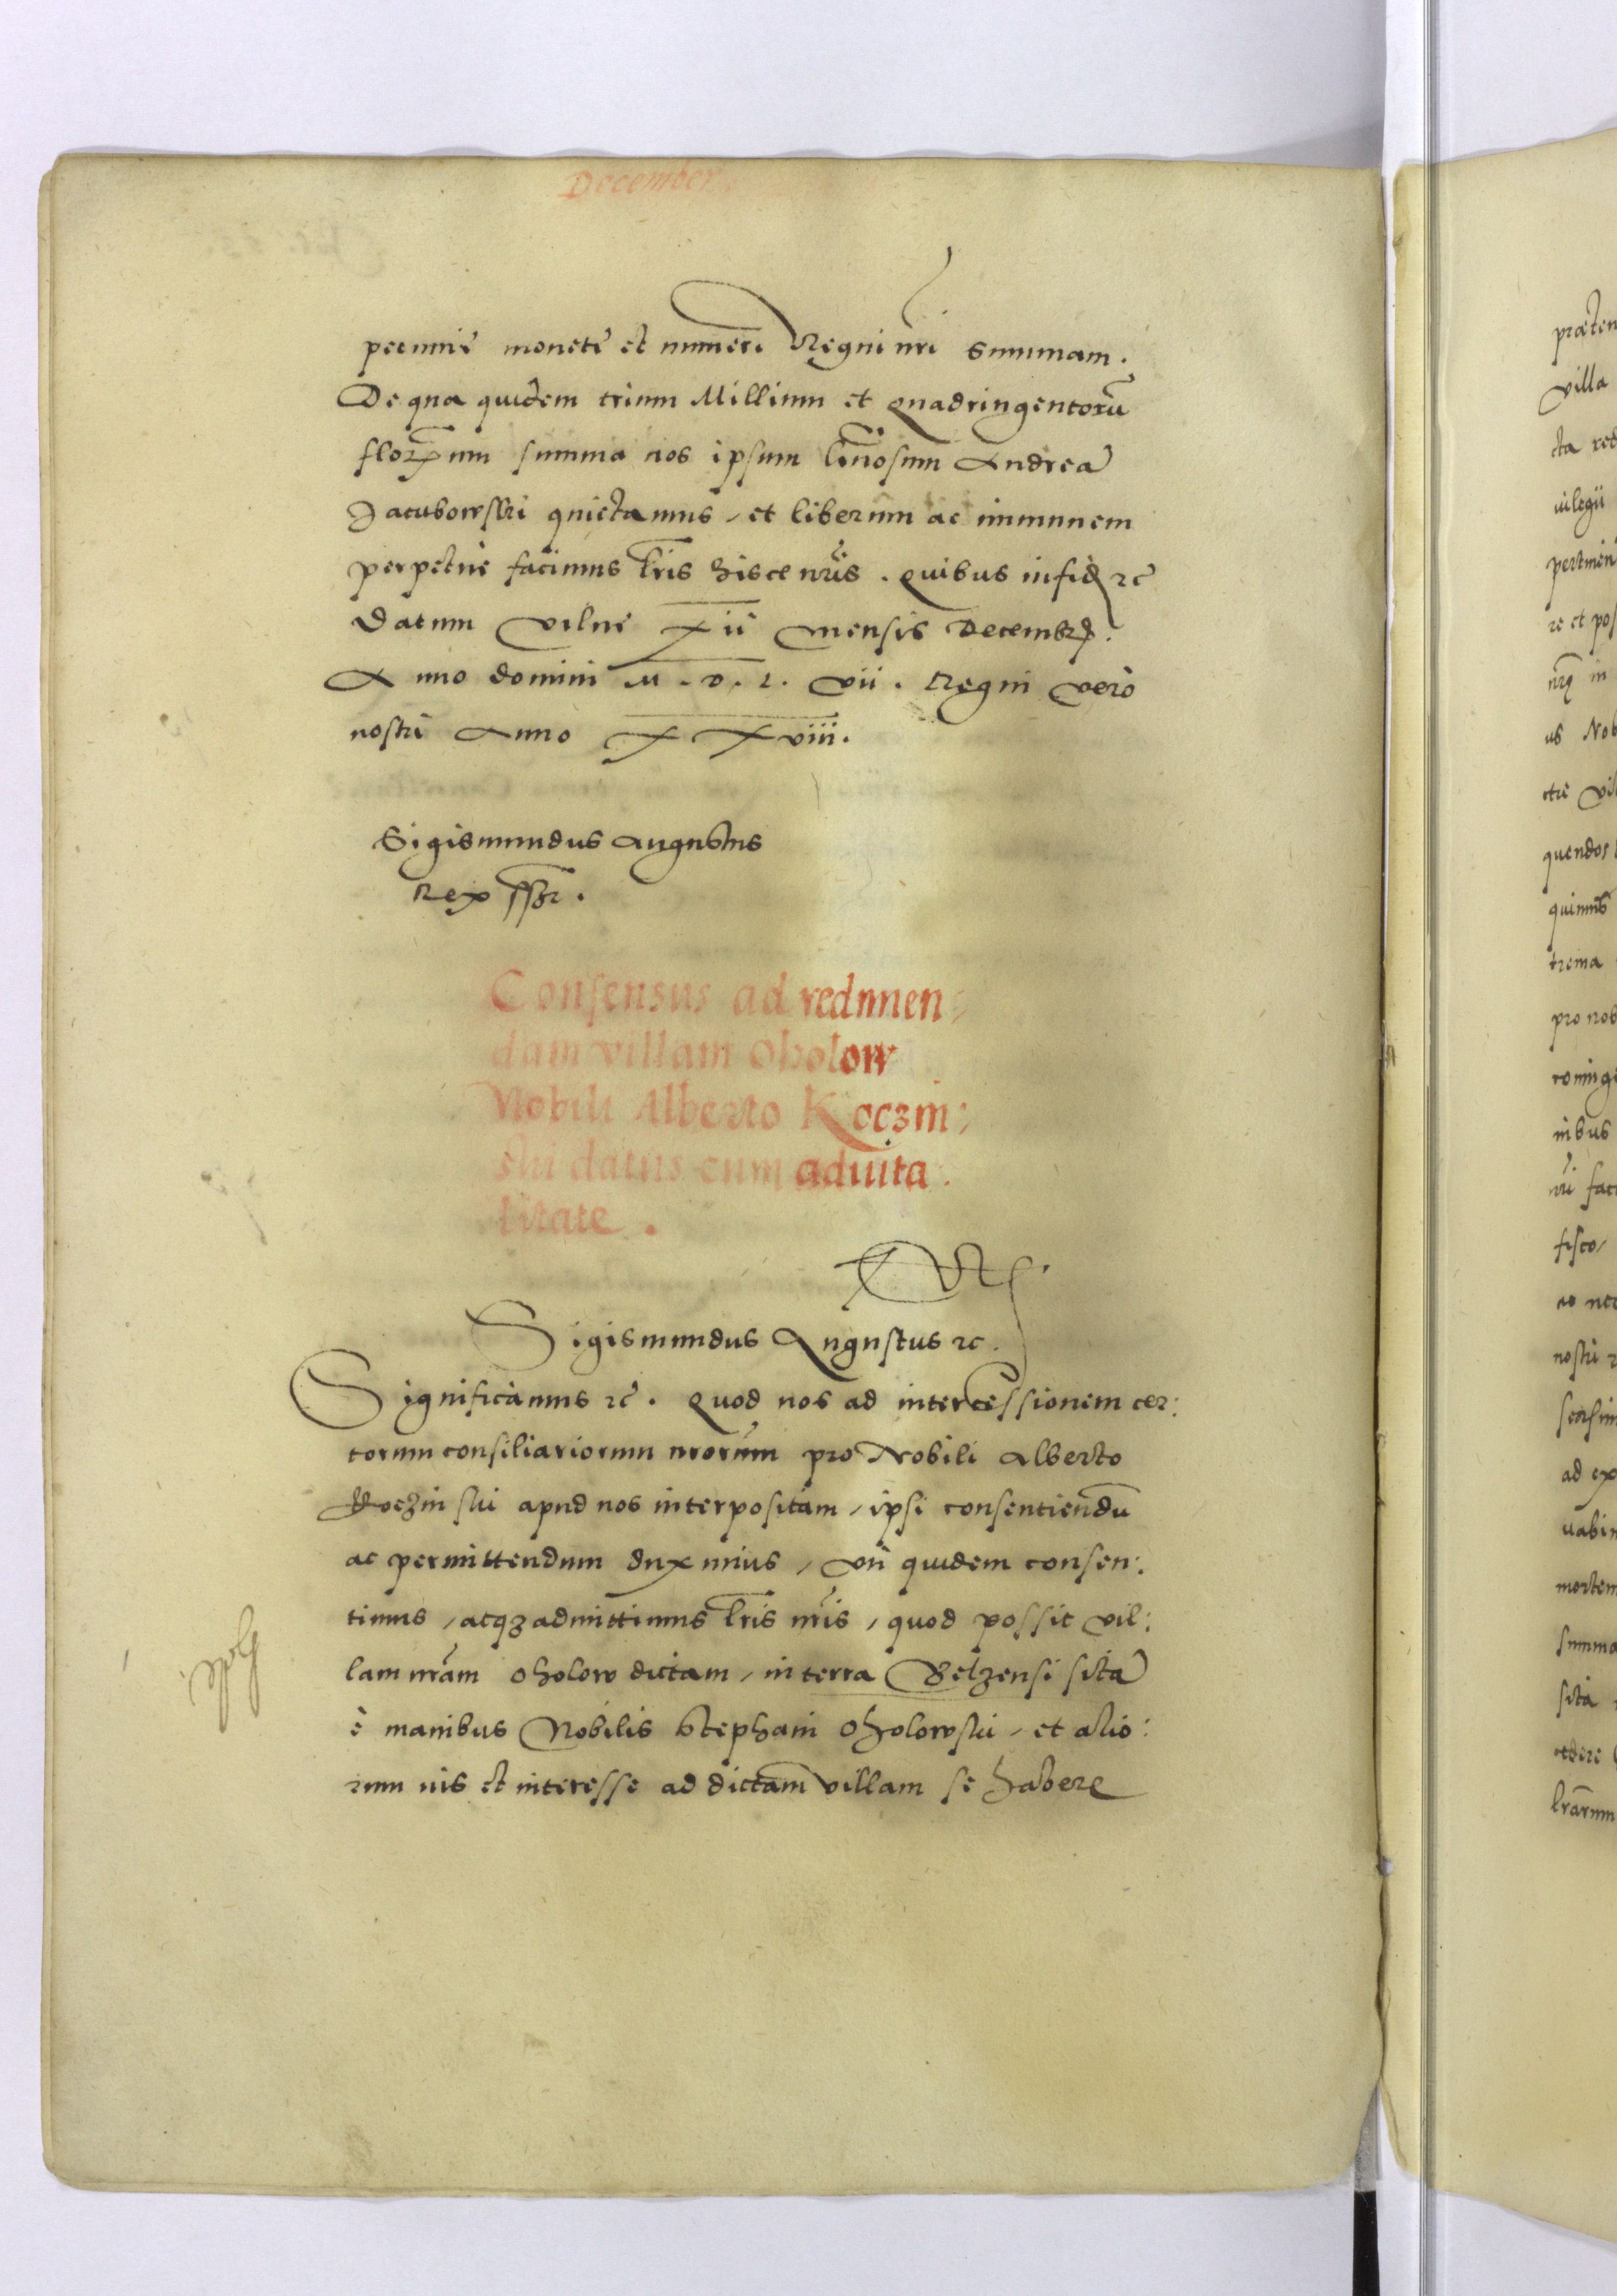 December
pecunię monetę et numeri Regni nr̃i summam.
De qua quidem trium Millium et Quadringentorũ
florenum summa nos ipsum Gn̄osum Andreã
Jacubowski quietamus, et liberum ac immunem
perpetuè facimus lr̃is hisce nr̃is. Quibus in fidẽ ⁊c̃
Datum Vilnę XII mensis Decembr̃.
Anno domini M.D.L.VII. Regni verò
nostri Anno XXVIII.
Sigismundus Augustus
Rex sszt.
Consensus ad redimen:
dam villam Oholow
Nobili Alberto Koczin:
ski datus cum aduita
litate.
Sigismundus Augustus ⁊c.
Significamus ⁊c̃. Quod nos ad intercessionem cer:
torum consiliariorum nr̃orum pro Nobili Alberto
Koczinski apud nos interpositam, ipsi consentiendũ
ac permittendum duximus, vti quidem consen:
timus, atqꝫ admittimus lr̃is nr̃is, quod possit vil:
lam nr̃am Oholow dictam, in terra Belzensi sitã
è manibus Nobilis Stephani Oholowski, et alio:
rum ius et interesse ad dictam villam se habere
præten
villa
cta red
uilegii
pertinen
re et pos
in
us Nob
quendos
quimus
trema
pro nob
nibus
fisco,
ac nec
nostri
ad ex
uabim
mortem
summa
sita
cedere
lrarum